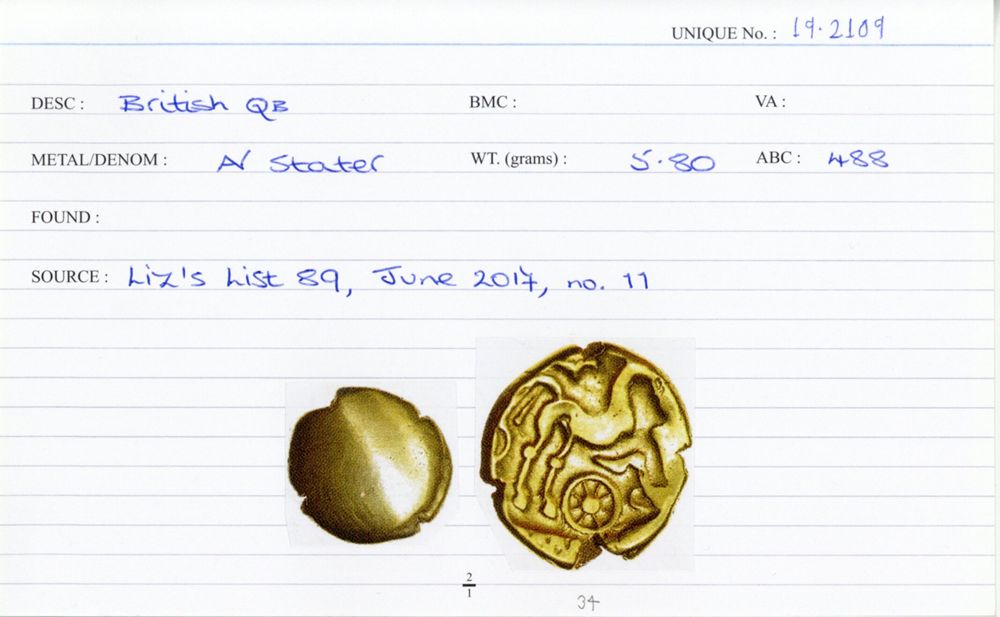 UNIQUE No. : 19.2109
DESC : British QB BMC : VA :
METAL/DENOM : AV Stater WT. (grams) : 5.80 ABC : 488
FOUND :
SOURCE : Liz's List 89, June 2017, no. 11
2
1
34